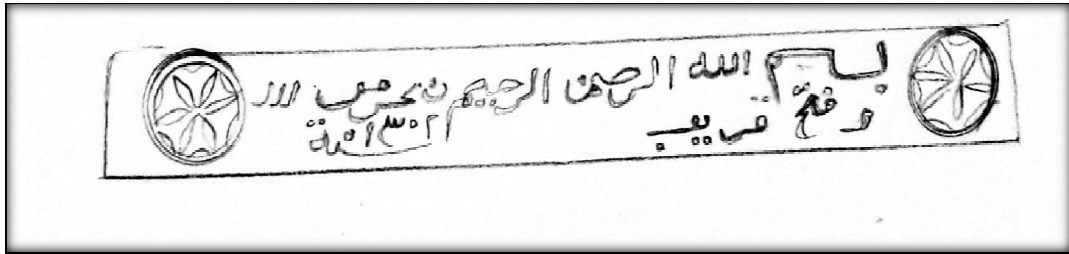 بسم الله الرحمن الرحيم نصر من الله
وفتح قريب سنة ١٣٠٢